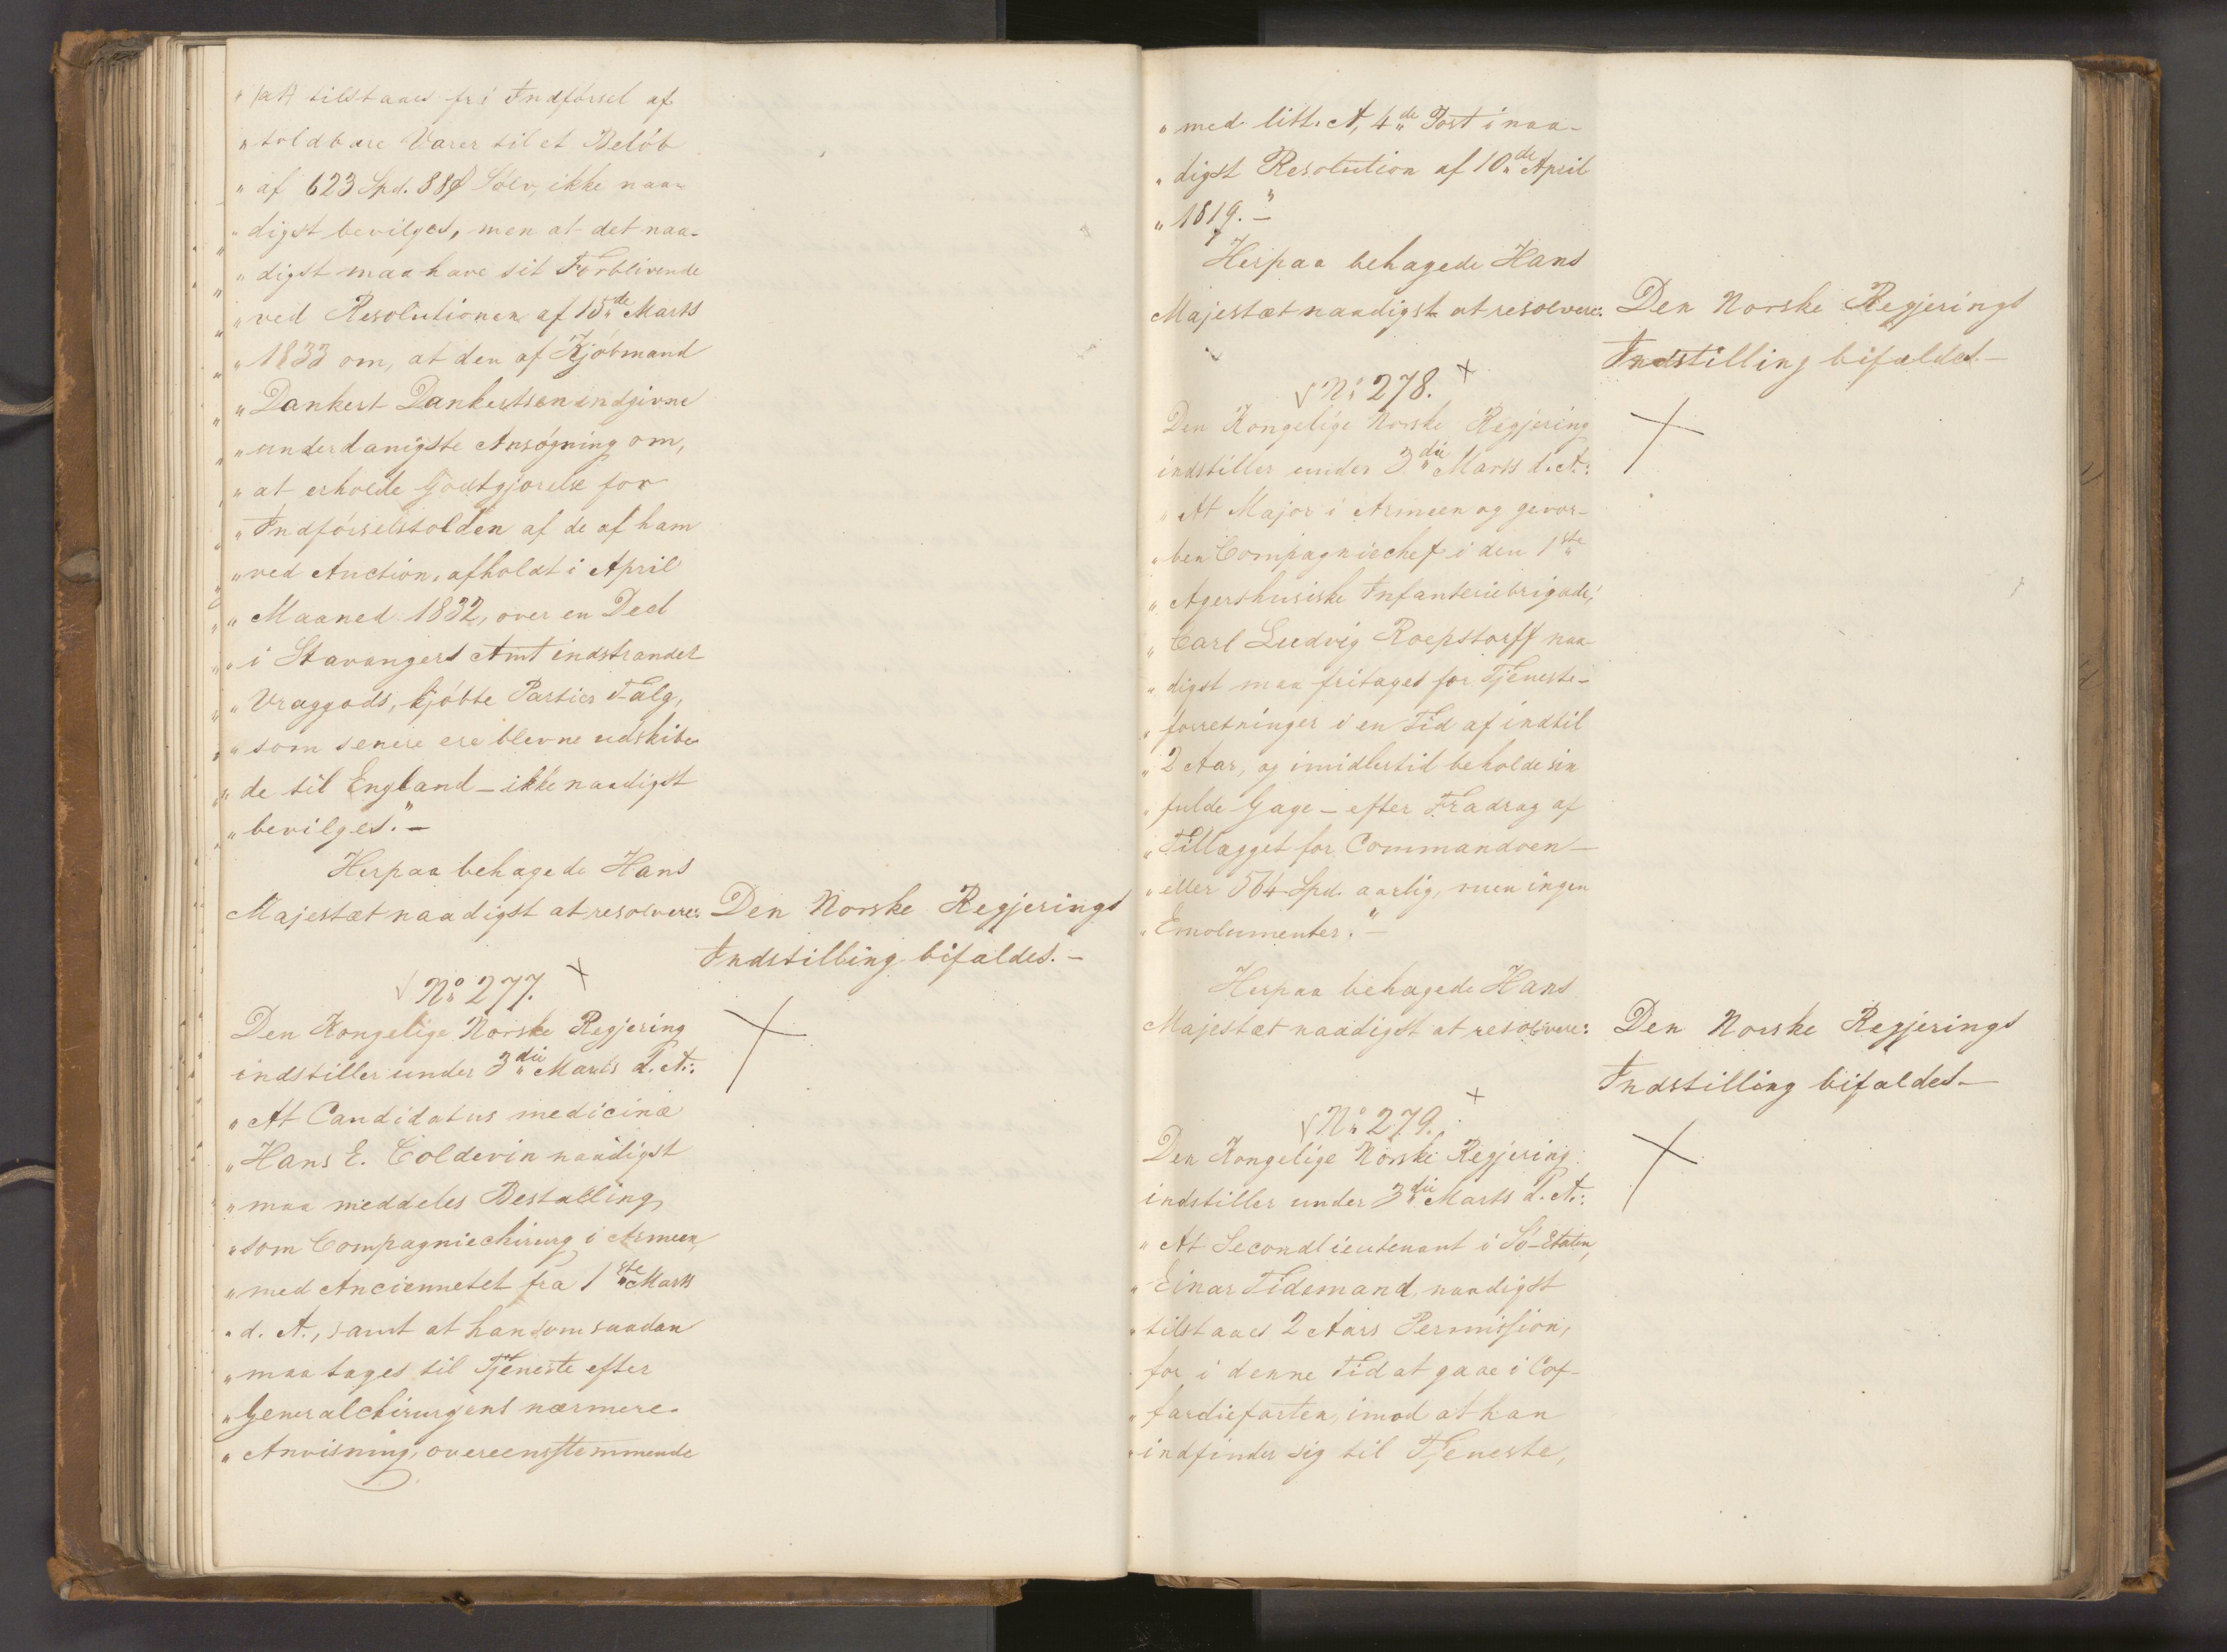 " (at) tilstaaes fri Indførsel af
" toldbare Varer til et Beløb
" af 623 Spd. 88 ß Sølv, ikke naa-
" digst bevilges, men at det naa-
" digst maa have sit Forblivende
" ved Resolutionen af 15de Marts
" 1833 om, at den af Kjøbmand
" Dankert Dankertsen indgivne
" underdanigste Ansøgning om,
" at erholde Godtgjørelse for
" Indførselstolden af de af ham
" ved Auction, afholdt i April
" Maaned 1832, over en Deel
" i Stavangers Amt indstrandet
" Vraggods, kjøbte Partier Talg,
" som senere ere blevne udskibe-
" de til England - ikke naadigst
" bevilges." -
Herpaa behagede Hans
Majestæt naadigst at resolvere:
Den Norske Regjerings
Indstilling bifaldes. -
No 277.
Den Kongelige Norske Regjering
indstiller under 3die Marts d. A.:
" At Candidatus medicinæ
" Hans E. Coldevin naadigst
" maa meddeles Bestalling
" som Compagniechirurg i Armeen,
" med Anciennetet fra 1ste Marts
" d. A., samt at han som saadan
" maa tages til Tjeneste efter
" Generalchirurgens nærmere
" Anvisning, overeensstemmende
" med litt. A, 4de Post i naa-
" digst Resolution af 10de April
" 1819. -"
Herpaa behagede Hans
Majestæt naadigst at resolvere:
Den Norske Regjerings
Indstilling bifaldes. -
No 278.
Den Kongelige Norske Regjering
indstiller under 3die Marts d. A.:
" At Major i Armeen og gevor-
" ben Compagniechef i den 1ste
" Agershusiske Infanteriebrigade,
" Carl Ludvig Roepstorff naa-
" digst maa fritages for Tjeneste-
" forretninger i en Tid af indtil
" 2 Aar, og imidlertid beholde sin
" fulde Gage - efter Fradrag af
" Tillægget for Commandoen -
" eller 564 Spd. aarlig, men ingen
" Emolumenter." -
Herpaa behagede Hans
Majestæt naadigst at resolvere:
Den Norske Regjerings
Indstilling bifaldes -
No 279.
Den Kongelige Norske Regjering
indstiller under 3die Marts d. A.:
" At Secondlieutenant i Sø-Etaten,
" Einar Tidemand, naadigst
" tilstaaes 2 Aars Permission,
" for i denne Tid at gaae i Cof-
" fardiefarten, imod at han
" indfinder sig til Tjeneste,